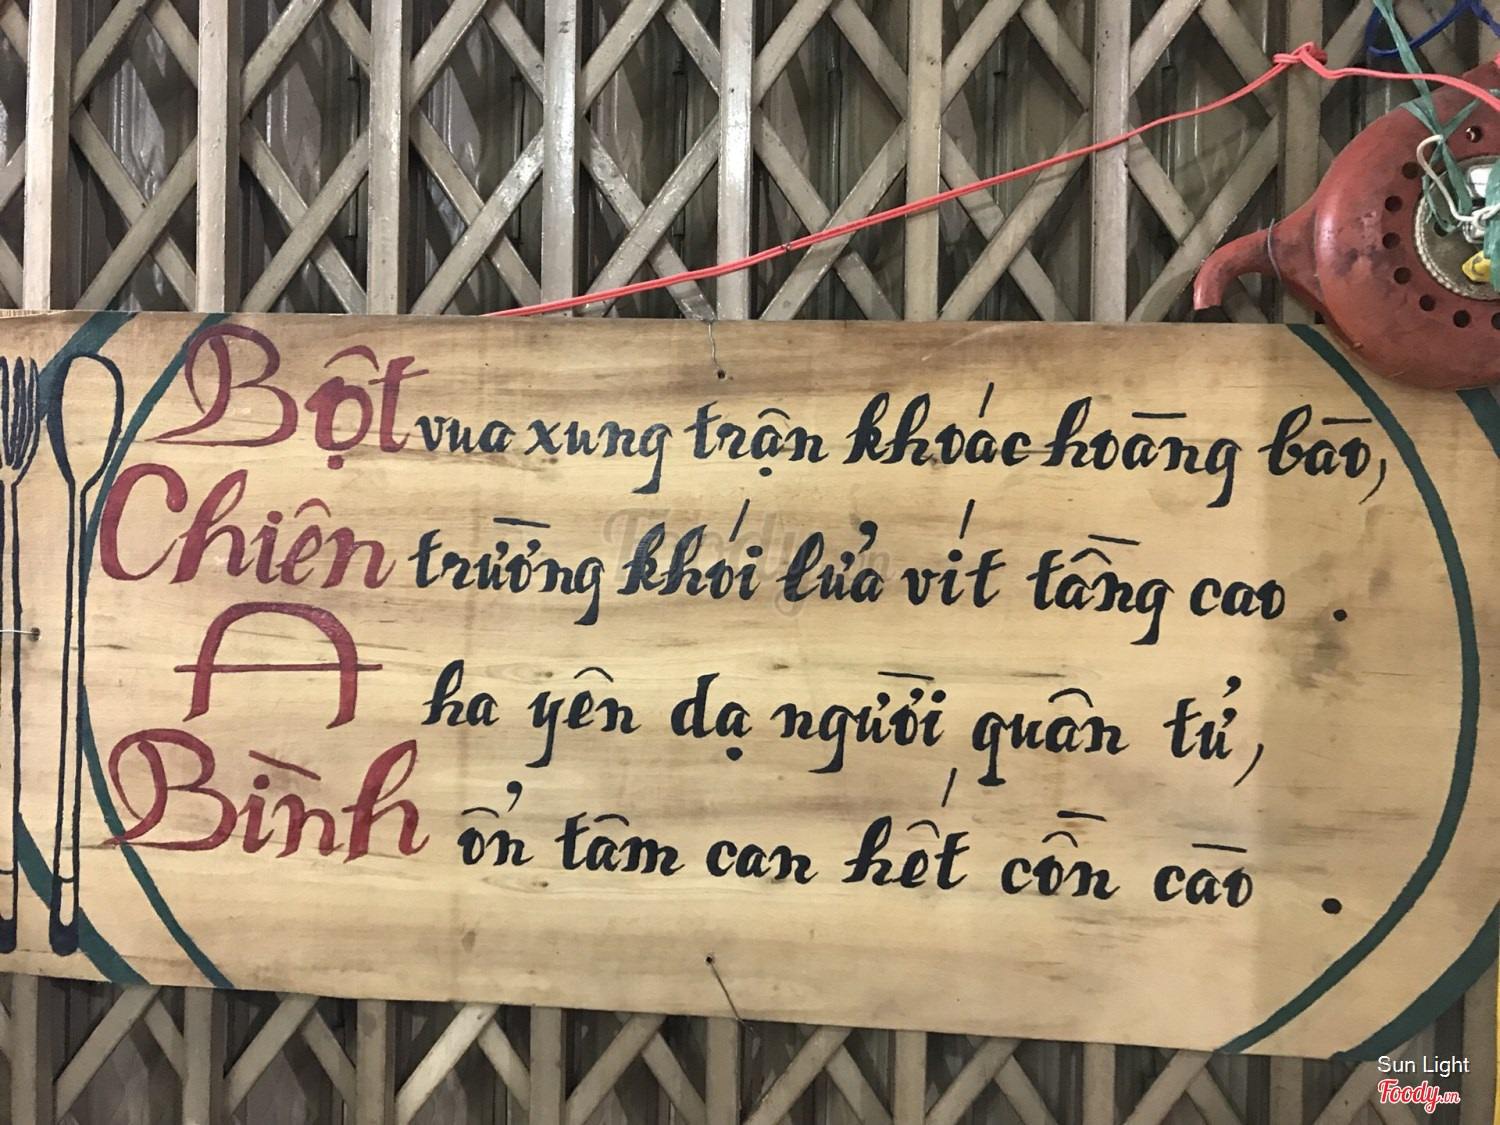 Bột vua xung trận khoác hoàng bào,
Chiên trường khói lửa vít tầng cao .
A ha yên dạ người quân tử,
Bình ổn tâm can hết cồn cào .
Foody.vn
Sun Light
Foody.vn